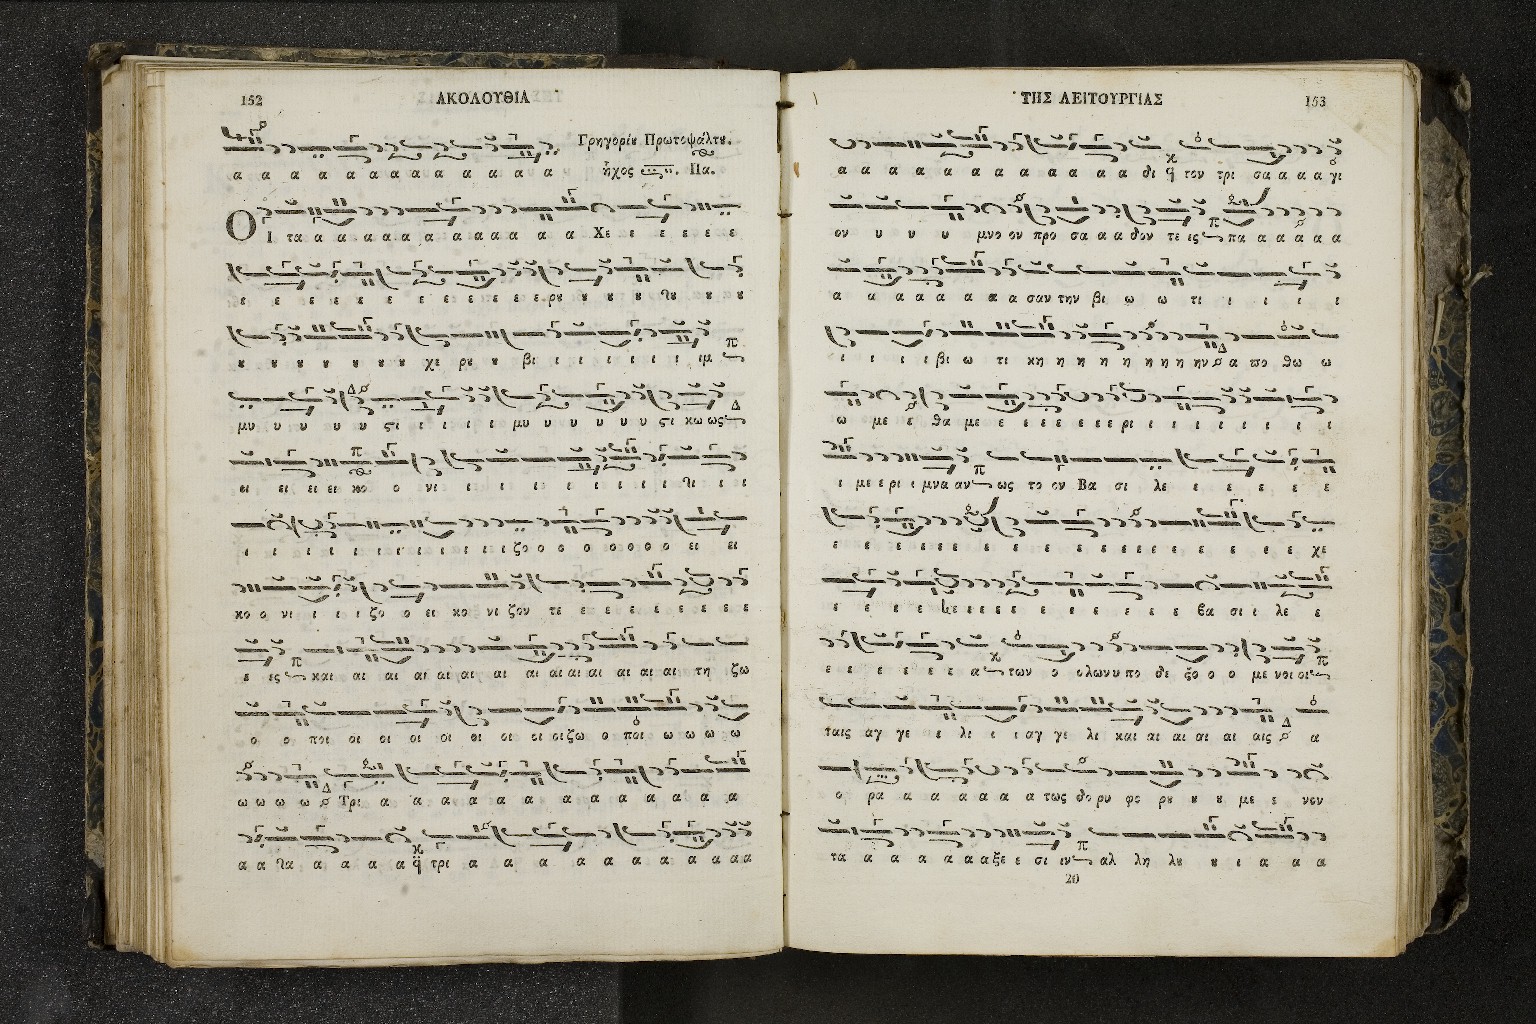 152
ΑΚΟΛΟΥΘΙΑ
Γρηγορίȣ Πρωτοψάλτȣ.
α α α α α α α α α α α α α ἦχος Πα.
ΟΙ τα α α α α α α α α α α α α Χε ε ε ε ε ε
ε ε ε ε ε ε ε ε ε ε ε ε ε ρȣ ȣ ȣ ȣ ȣ ȣ ȣ
ȣ ȣ ȣ ȣ ȣ ȣ ȣ χε ρȣ ȣ βι ι ι ι ι ι ι ι ιμ
μυ υ υ υ υ ςι ι ι ι ι μυ υ υ υ υ υ ςι κω ως
ει ει ει ει κο ο νι ι ι ι ι ι ι ι ι ι ι ι
ι ι ι ι ι ι ι ι ι ι ι ι ζο ο ο ο ο ο ο ο ο ει ει
κο ο νι ι ι ι ζο ο ει κο νι ζον τε ε ε ε ε ε ε ε ε
ε ες και αι αι αι αι αι αι αι αι αι αι αι αι αι αι τη ζω
ο ο ποι οι οι οι οι οι οι οι οι ζω ο ποι ω ω ω ω
ω ω ω ω Τρι α α α α α α α α α α α α α α
α α α α α α α ἢ τρι α α α α α α α α α α α α
ΤΗΣ ΛΕΙΤΟΥΡΓΙΑΣ
153
α α α α α α α α α α α α α δι ἢ τον τρι σα α α α γι
ον υ υ υ μνο ον προ σα α α δον τε ες πα α α α α α
α α α α α α α α σαν την βι ω ω τι ι ι ι ι ι
ι ι ι ι βι ω τι κη η η η η η η η ην α πο θω ω
ω με ε θα με ε ε ε ε ε ε ε ρι ι ι ι ι ι ι ι ι
ι με ε ρι ι μνα αν ως το ον Βα σι λε ε ε ε ε ε
ε ε ε ε ε ε ε ε ε ε ε ε ε ε ε ε ε ε ε ε χε
ε ε ε ε ε ε ε ε ε ε ε ε ε ε ε βα σι ι λε ε
ε ε ε ε ε ε α των ο ολων υ πο δε ξο ο ο με νοι οι
ταις αγ γε ε λι ι ι αγ γε λι και αι αι αι αι αι αις α
ο ρα α α α α α α τως δο ρυ φο ρȣ ȣ ȣ με ε νον
τα α α α α α α α ξε ε σι ιν αλ λη λȣ ȣ ι α α α
20